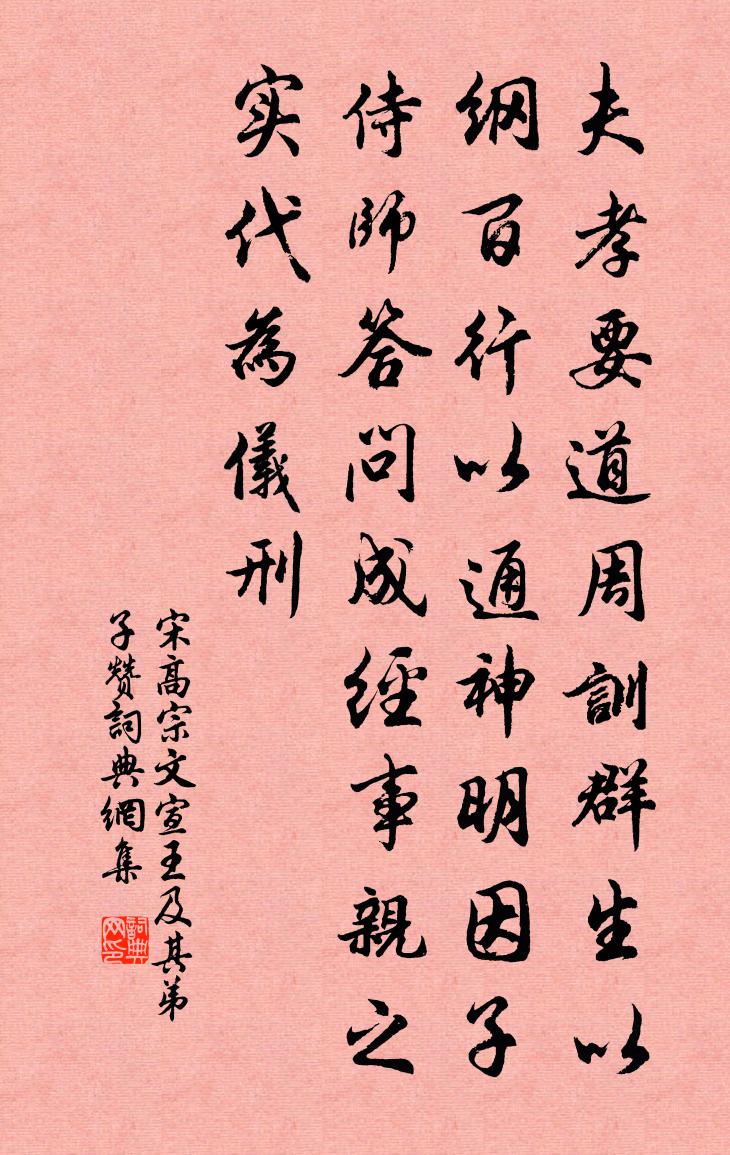 夫孝要道周訓群生以
纲百行以通神明因子
侍師答问成經事親之
实代為儀刑
宋高宗文宣王及其弟
子贊詞典網集
詞典网印